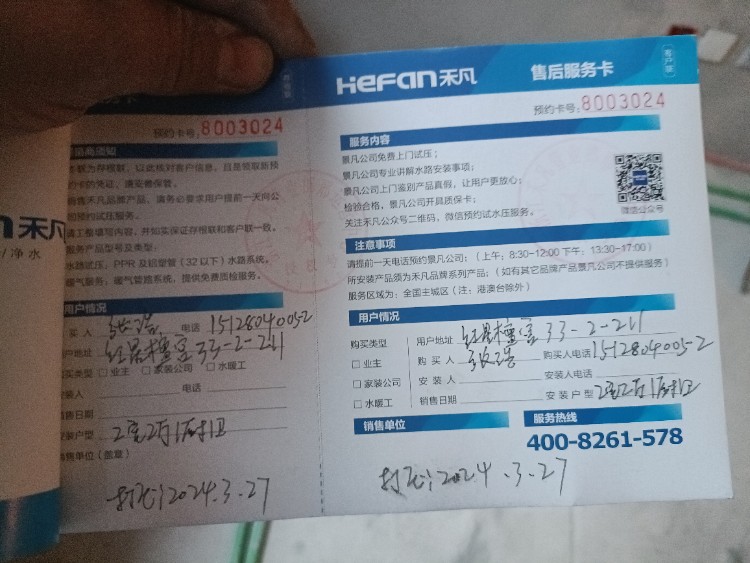 禾凡
/净水
存根联
务卡
预约卡号：8003024
见商须知
本联为存根联，以此核对客户信息，且是领取新预
约卡的凭证，请妥善保管。
销售禾凡品牌产品，请务必要求用户提前一天向公
司预约试压服务。
请工整填写内容，并如实保证存根联和客户联一致。
服务产品型号及类型：
水路试压，PPR 及铝塑管（32以下）水路系统。
暖气管路系统，提供免费质检服务。
用户情况
买 人 电话 15128040052
户地址 33-2-211
购买类型 □ 业主 □ 家装公司 □ 水暖工
装人 电话
销售日期
安装户型 2室2厅1厨1卫
销售单位（盖章）
2024.3.27
HeFan禾凡 售后服务卡
客户联
预约卡号：8003024
服务内容
景凡公司免费上门试压；
景凡公司专业讲解水路安装事项；
景凡公司上门鉴别产品真假，让用户更放心；
检验合格，景凡公司开具质保卡；
关注禾凡公众号二维码，微信预约试水压服务。
微信公众号
注意事项
请提前一天电话预约景凡公司：（上午：8:30-12:00 下午：13:30-17:00）
所安装产品须为禾凡品牌系列产品；（如有其它品牌产品景凡公司不提供服务）
服务区域为：全国主城区（注：港澳台除外）
用户情况
购买类型 用户地址 33-2-211
□ 业主 购 买 人 购买人电话 1512804005-2
□ 家装公司 安 装 人 安装人电话
□ 水暖工 销售日期 安 装 户 型 2室2厅1厨1卫
销售单位 服务热线
400-8261-578
2024.3.27